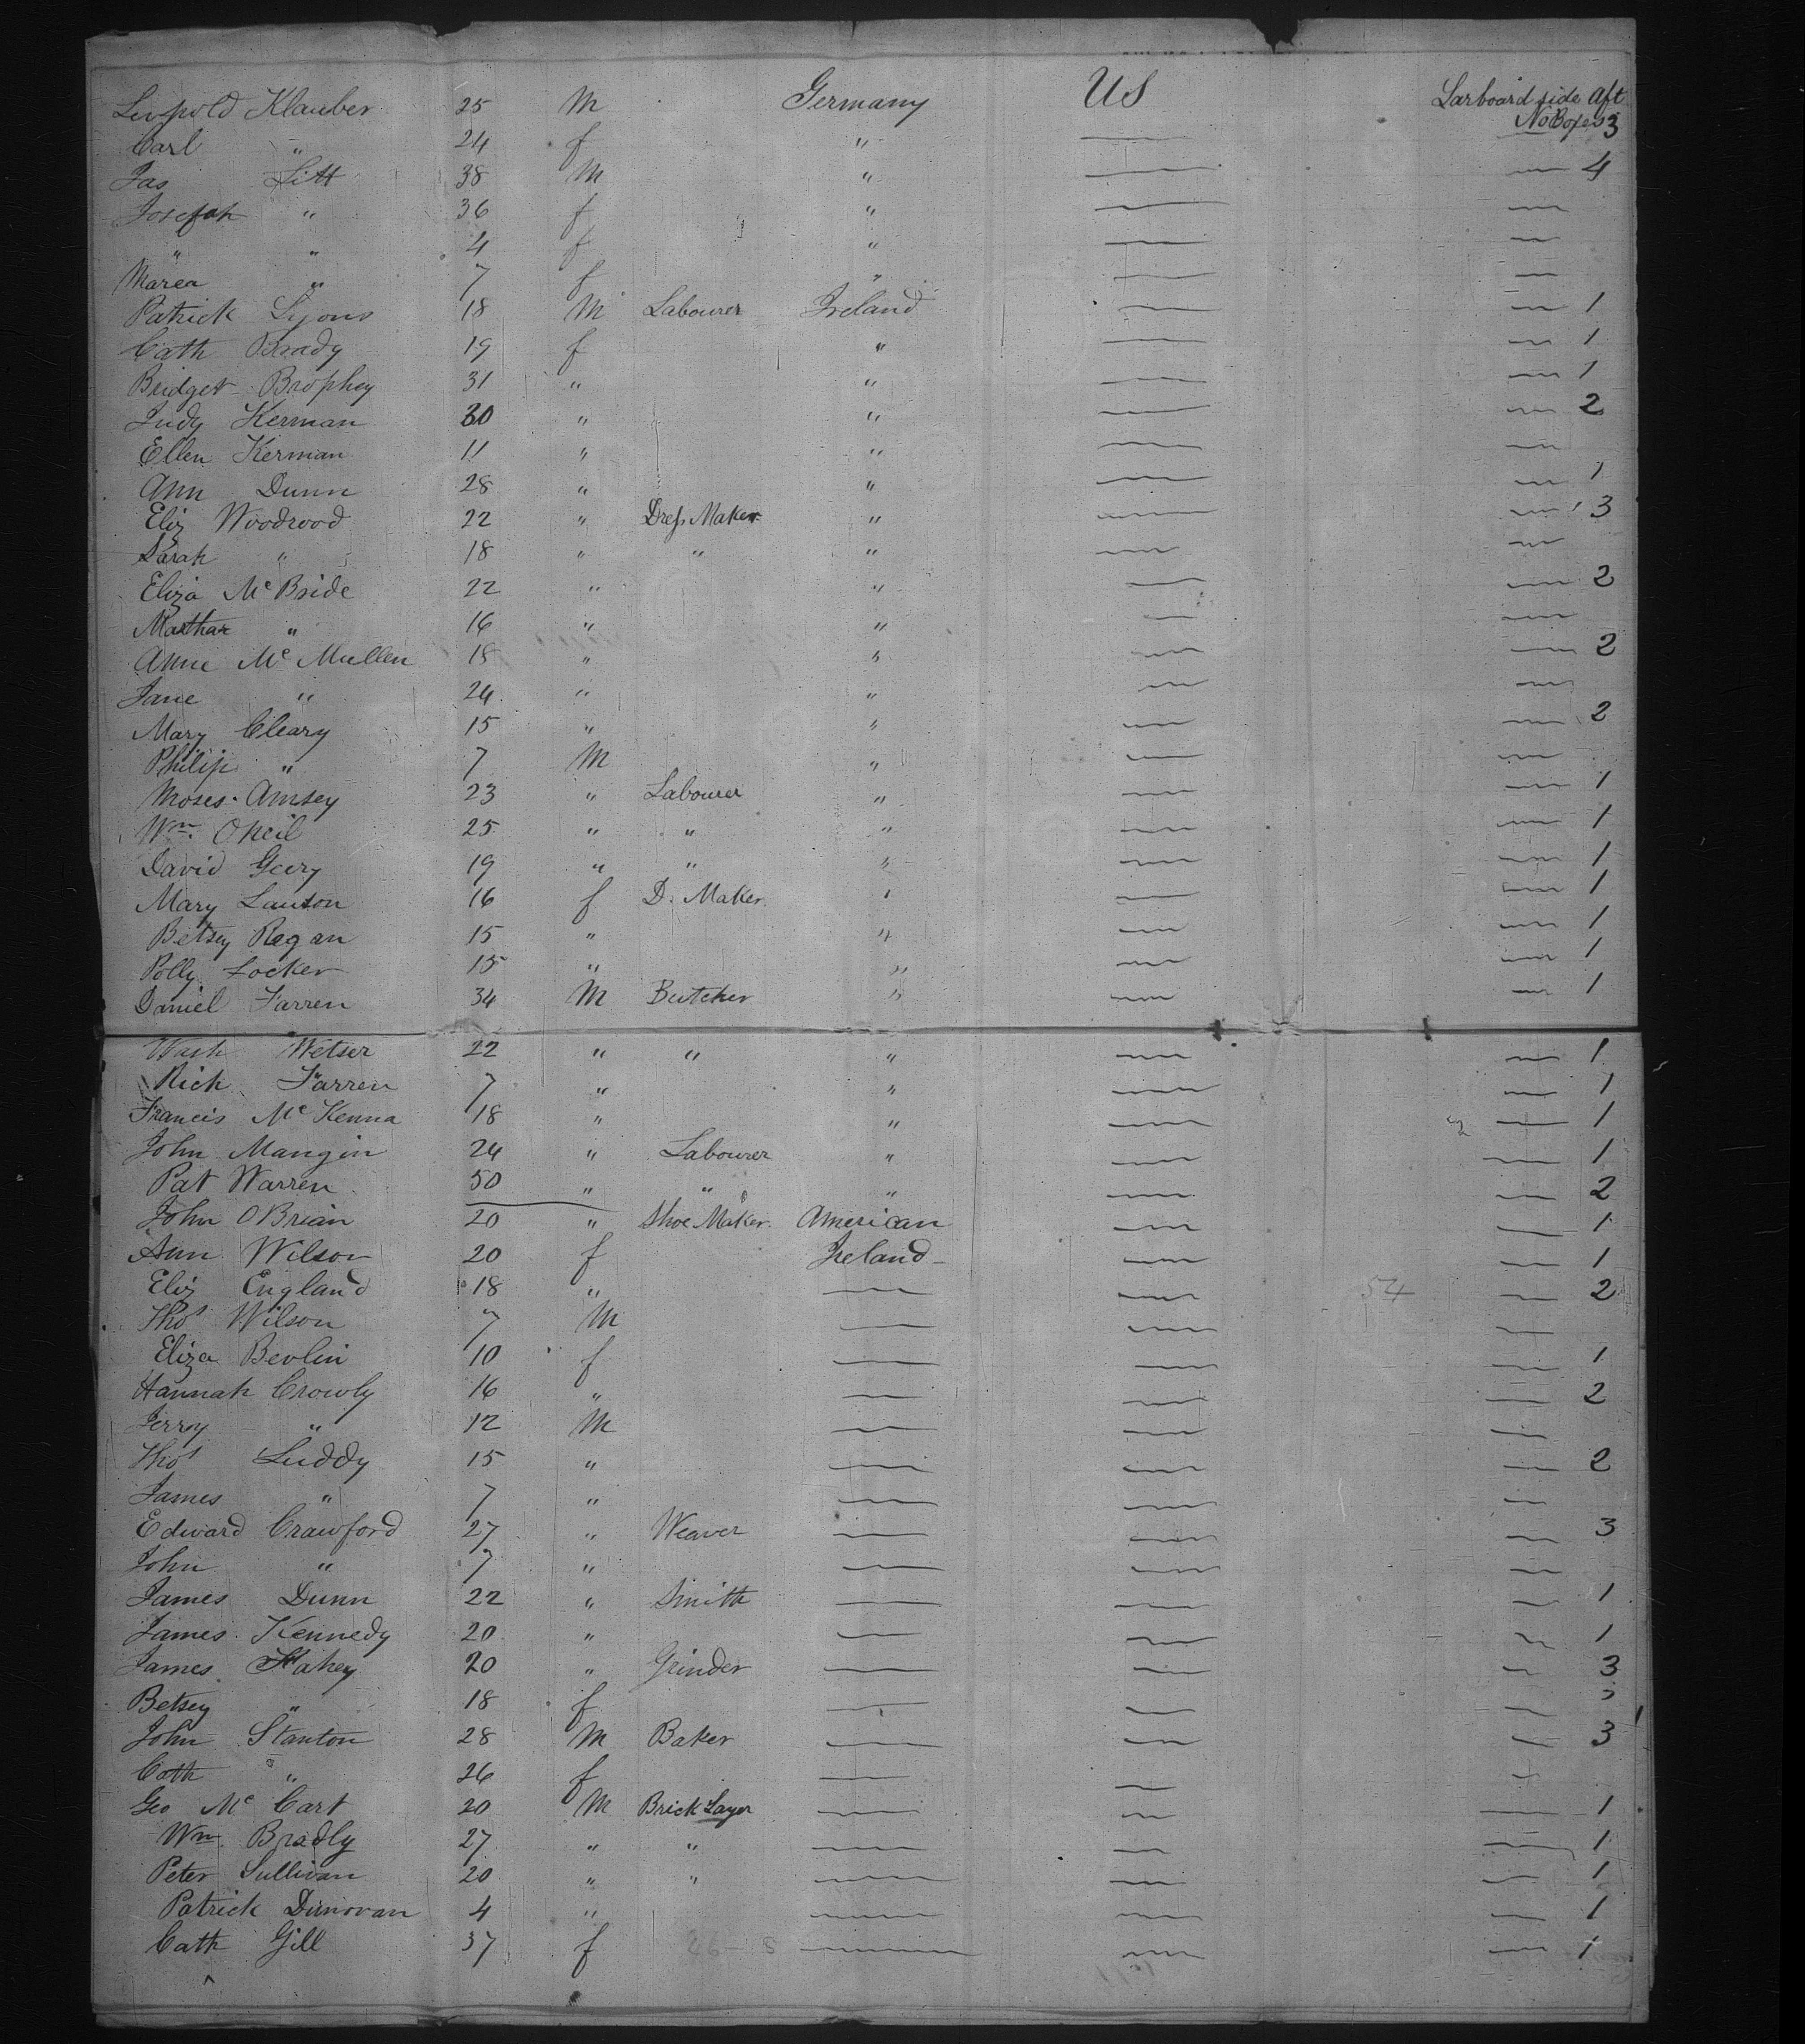 Leopold Klauber 25 M Germany US Larboard side Aft
No Boxes 3
Carl " 24 f " —
Jas Litt 38 M " — — 4
Josefah " 36 f " — —
" " 4 f " — —
Marea " 7 f " — —
Patrick Lyons 18 M Labourer Ireland — — 1
Cath Brady 19 f " — — 1
Bridget Brophey 31 " " — — 1
Judy Kerman 30 " " — — 2
Ellen Kerman 11 " " — —
Ann Dunn 28 " " — — 1
Eliz Woodrood 22 " Dress Maker " — — 3
Sarah " 18 " " " — —
Eliza Mc Bride 22 " " — — 2
Marthar " 16 " " — —
Anne Mc Mullen 18 " " — — 2
Jane " 24 " " — —
Mary Cleary 15 " " — — 2
Philip " 7 M " — —
Moses Amsey 23 " Labourer " — — 1
Wm. ONeil 25 " " " — — 1
David Geery 19 " " " — — 1
Mary Lauton 16 f D. Maker " — — 1
Betsey Regan 15 " " — — 1
Polly Locker 15 " " — — 1
Daniel Farren 34 M Butcher " — — 1
Wash Wetser 22 " " " — — 1
Rich Farren 7 " " — — 1
Francis Mc Kenna 18 " " — — 1
John Mangin 24 " Labourer " — — 1
Pat Warren 50 " " " — — 2
John OBrian 20 " Shoe Maker American — — 1
Ann Wilson 20 f Ireland — — 1
Eliz England 18 " — — 54 — 2
Thos Wilson 7 M — — —
Eliza Bevlin 10 f — — — 1
Hannah Crowly 16 " — — — 2
Jerry " 12 M — — —
Thos Luddy 15 " — — — 2
James " 7 " — — —
Edward Crawford 27 " Weaver — — — 3
John " 7 " — — —
James Dunn 22 " Smith — — — 1
James Kennedy 20 " — — — 1
James Fahey 20 " Grinder — — — 3
Betsey " 18 f — — — "
John Stanton 28 M Baker — — — 3
Cath " 26 f — — —
Geo Mc Cart 20 M Brick Layer — — — 1
Wm. Bradly 27 " " — — — 1
Peter Sullivan 20 " " — — — 1
Patrick Dunovan 4 " — — — 1
Cath Gill 37 f — — — 1